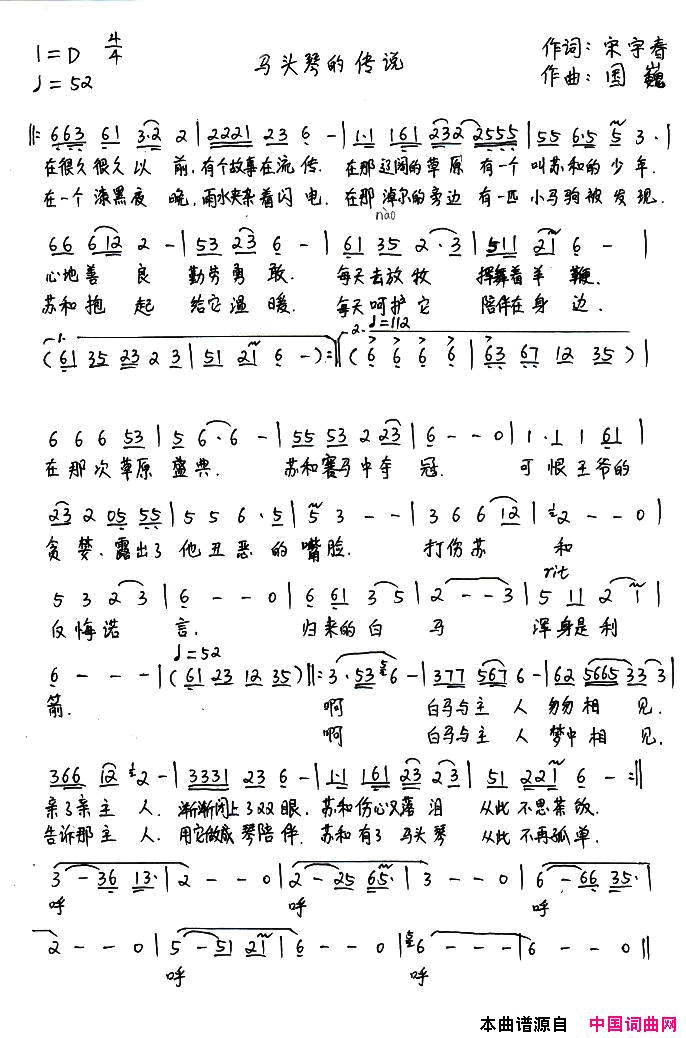 1=D 4/4
♩=52
马头琴的传说
作词：宋宇春
作曲：国巍
‖: 663 61 3·2 2 | 2221 23 6 - | 1·1 161 232 2555 | 55 6·5 5 3· |
在很久很久以 前，有个故事在流传. 在那辽阔的草原 有一个 叫苏和的少年.
在一个漆黑夜 晚，雨水夹杂着闪电. 在那淖尔的旁边 有一匹 小马驹被发现.
nào
66 612 2 - | 53 23 6 - | 61 35 2·3 | 511 21 6 - |
心地善 良 勤劳勇敢. 每天去放牧 挥舞着羊鞭.
苏和抱 起 给它温暖. 每天呵护它 陪伴在身边.
1. 2. ♩=112
(61 35 23 2 3 | 51 21 6 -):‖ (6 6 6 6 | 63 67 12 35) |
6 6 6 53 | 5 6·6 - | 55 53 2 23 | 6 - - 0 | 1·1 1 61 |
在那次草原 盛典. 苏和赛马中夺 冠. 可恨王爷的
23 2 05 55 | 5 5 6·5 | 5 3 - - | 3 6 6 12 | 2 - - 0 |
贪婪，露出了他丑恶的嘴脸. 打伤苏 和
rit
5 3 2 3 | 6 - - 0 | 6 61 3 5 | 2 - - 3 | 5 11 2 1 |
反悔诺 言. 归来的白 马 浑身是利
♩=52
6 - - - | (61 23 12 35) ‖: 3·53 6 - | 377 567 6 - | 62 5665 33 3 |
箭. 啊 白马与主 人 匆匆相 见.
啊 白马与主 人 梦中相 见.
366 12 2 - | 3331 23 6 - | 1·1 161 23 23 | 51 221 6 - :‖
亲了亲主 人. 渐渐闭上了双眼. 苏和伤心又落泪 从此不思茶饭.
告诉那主 人. 用它做成琴陪伴. 苏和有了马头琴 从此不再孤单.
3 - 36 13· | 2 - - 0 | 2 - 25 65· | 3 - - 0 | 6 - 66 35· |
呼 呼 呼
2 - - 0 | 5 - 51 21 | 6 - - 0 | 6 - - - | 6 - - 0 ‖
呼 呼
本曲谱源自 中国词曲网